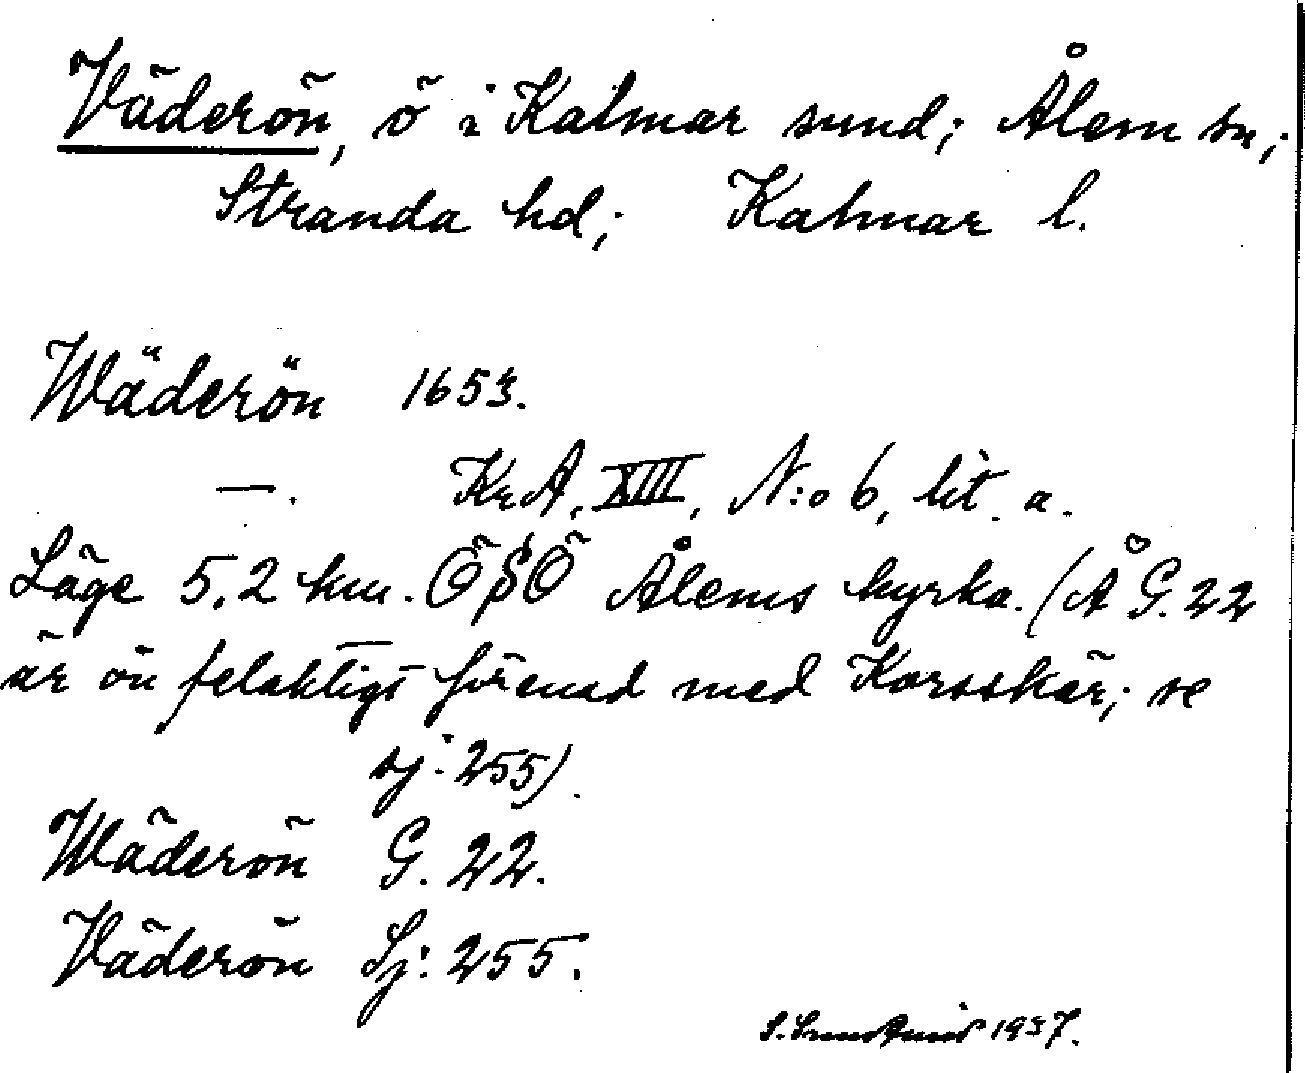 Väderön, ö i Kalmar sund; Ålem sn;
Stranda hd; Kalmar l.
Wäderön 1653.
—. KrA, XIII, N:o 6, lit. a.
Läge 5,2 km. ÖSÖ Ålems kyrka. (Å G. 22
är ön felaktigt förenad med Korsskär; se
sj: 255).
Wäderön G. 22.
Väderön Sj: 255.
S. 1937.